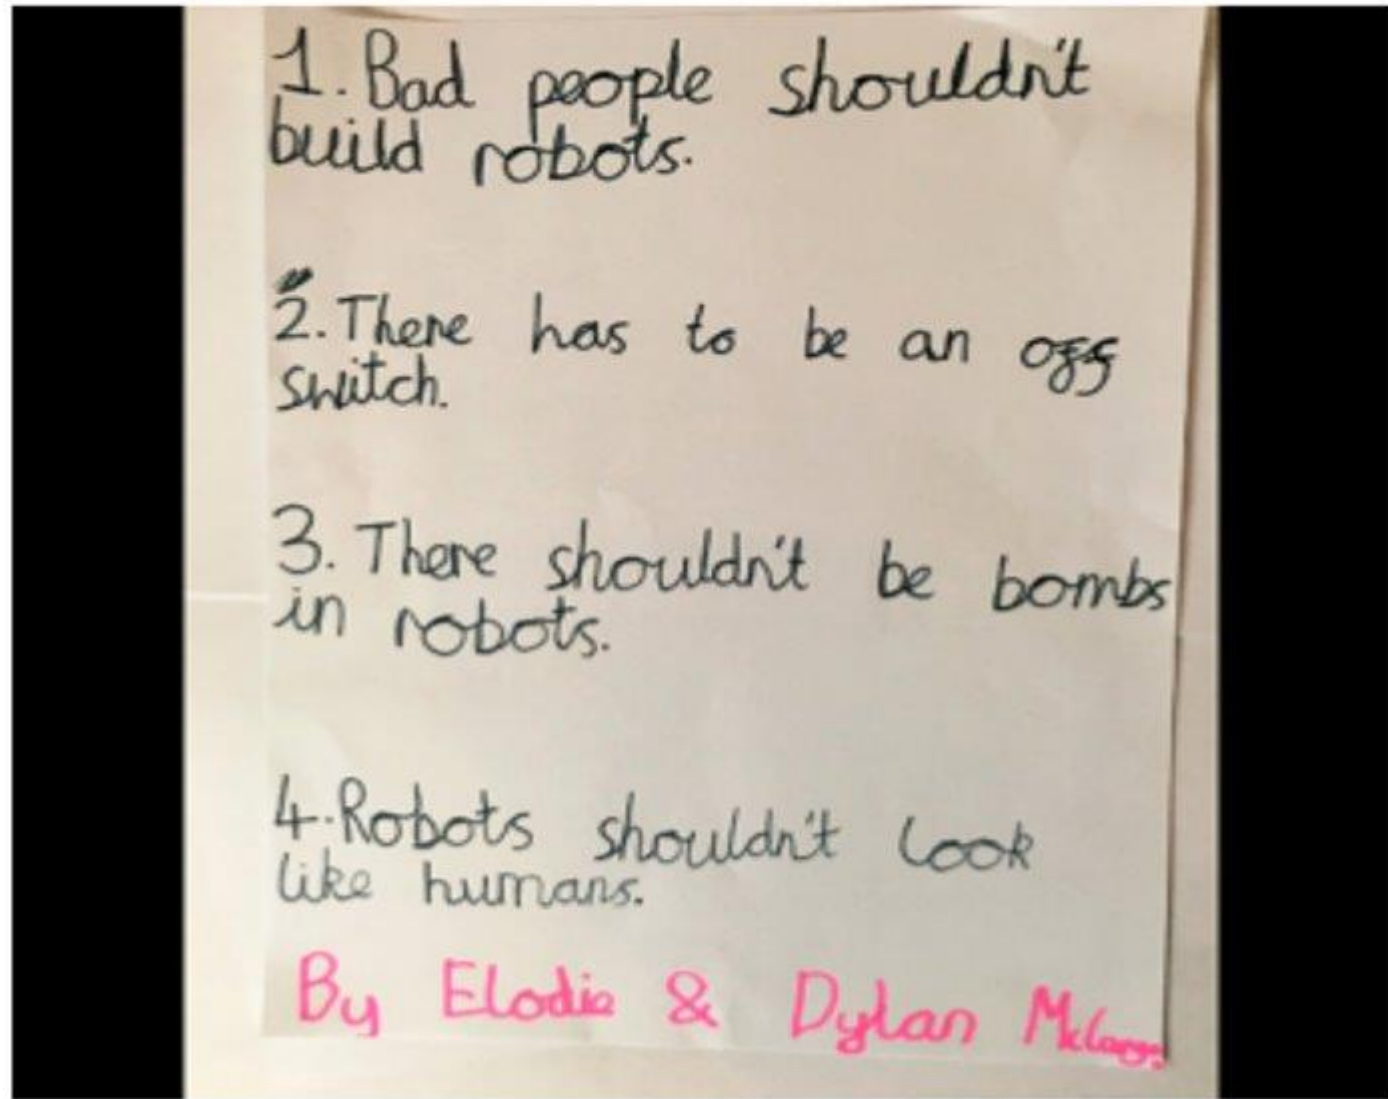 1. Bad people shouldn't
build robots.
2. There has to be an off
switch.
3. There shouldn't be bombs
in robots.
4. Robots shouldn't look
like humans.
By Elodie & Dylan